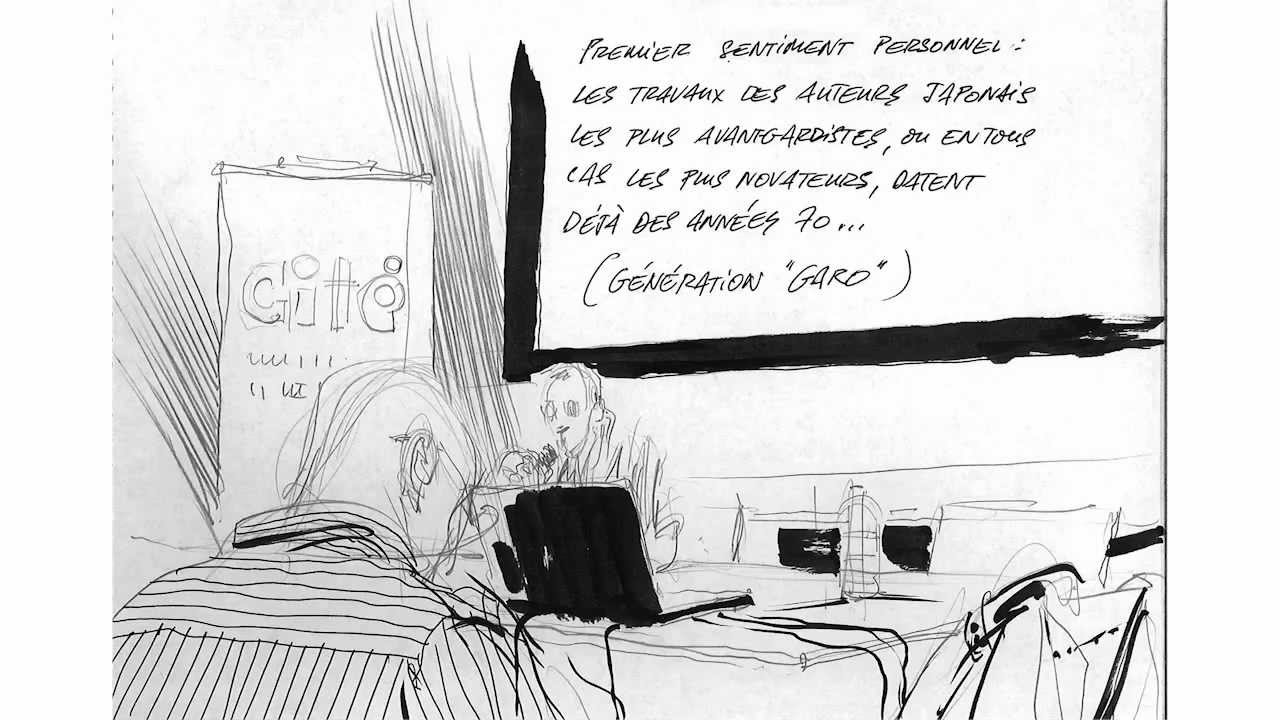 PREMIER SENTIMENT PERSONNEL :
LES TRAVAUX DES AUTEURS JAPONAIS
LES PLUS AVANT-GARDISTES, OU EN TOUS
CAS LES PLUS NOVATEURS, DATENT
DÉJÀ DES ANNÉES 70...
(GÉNÉRATION "GARO")